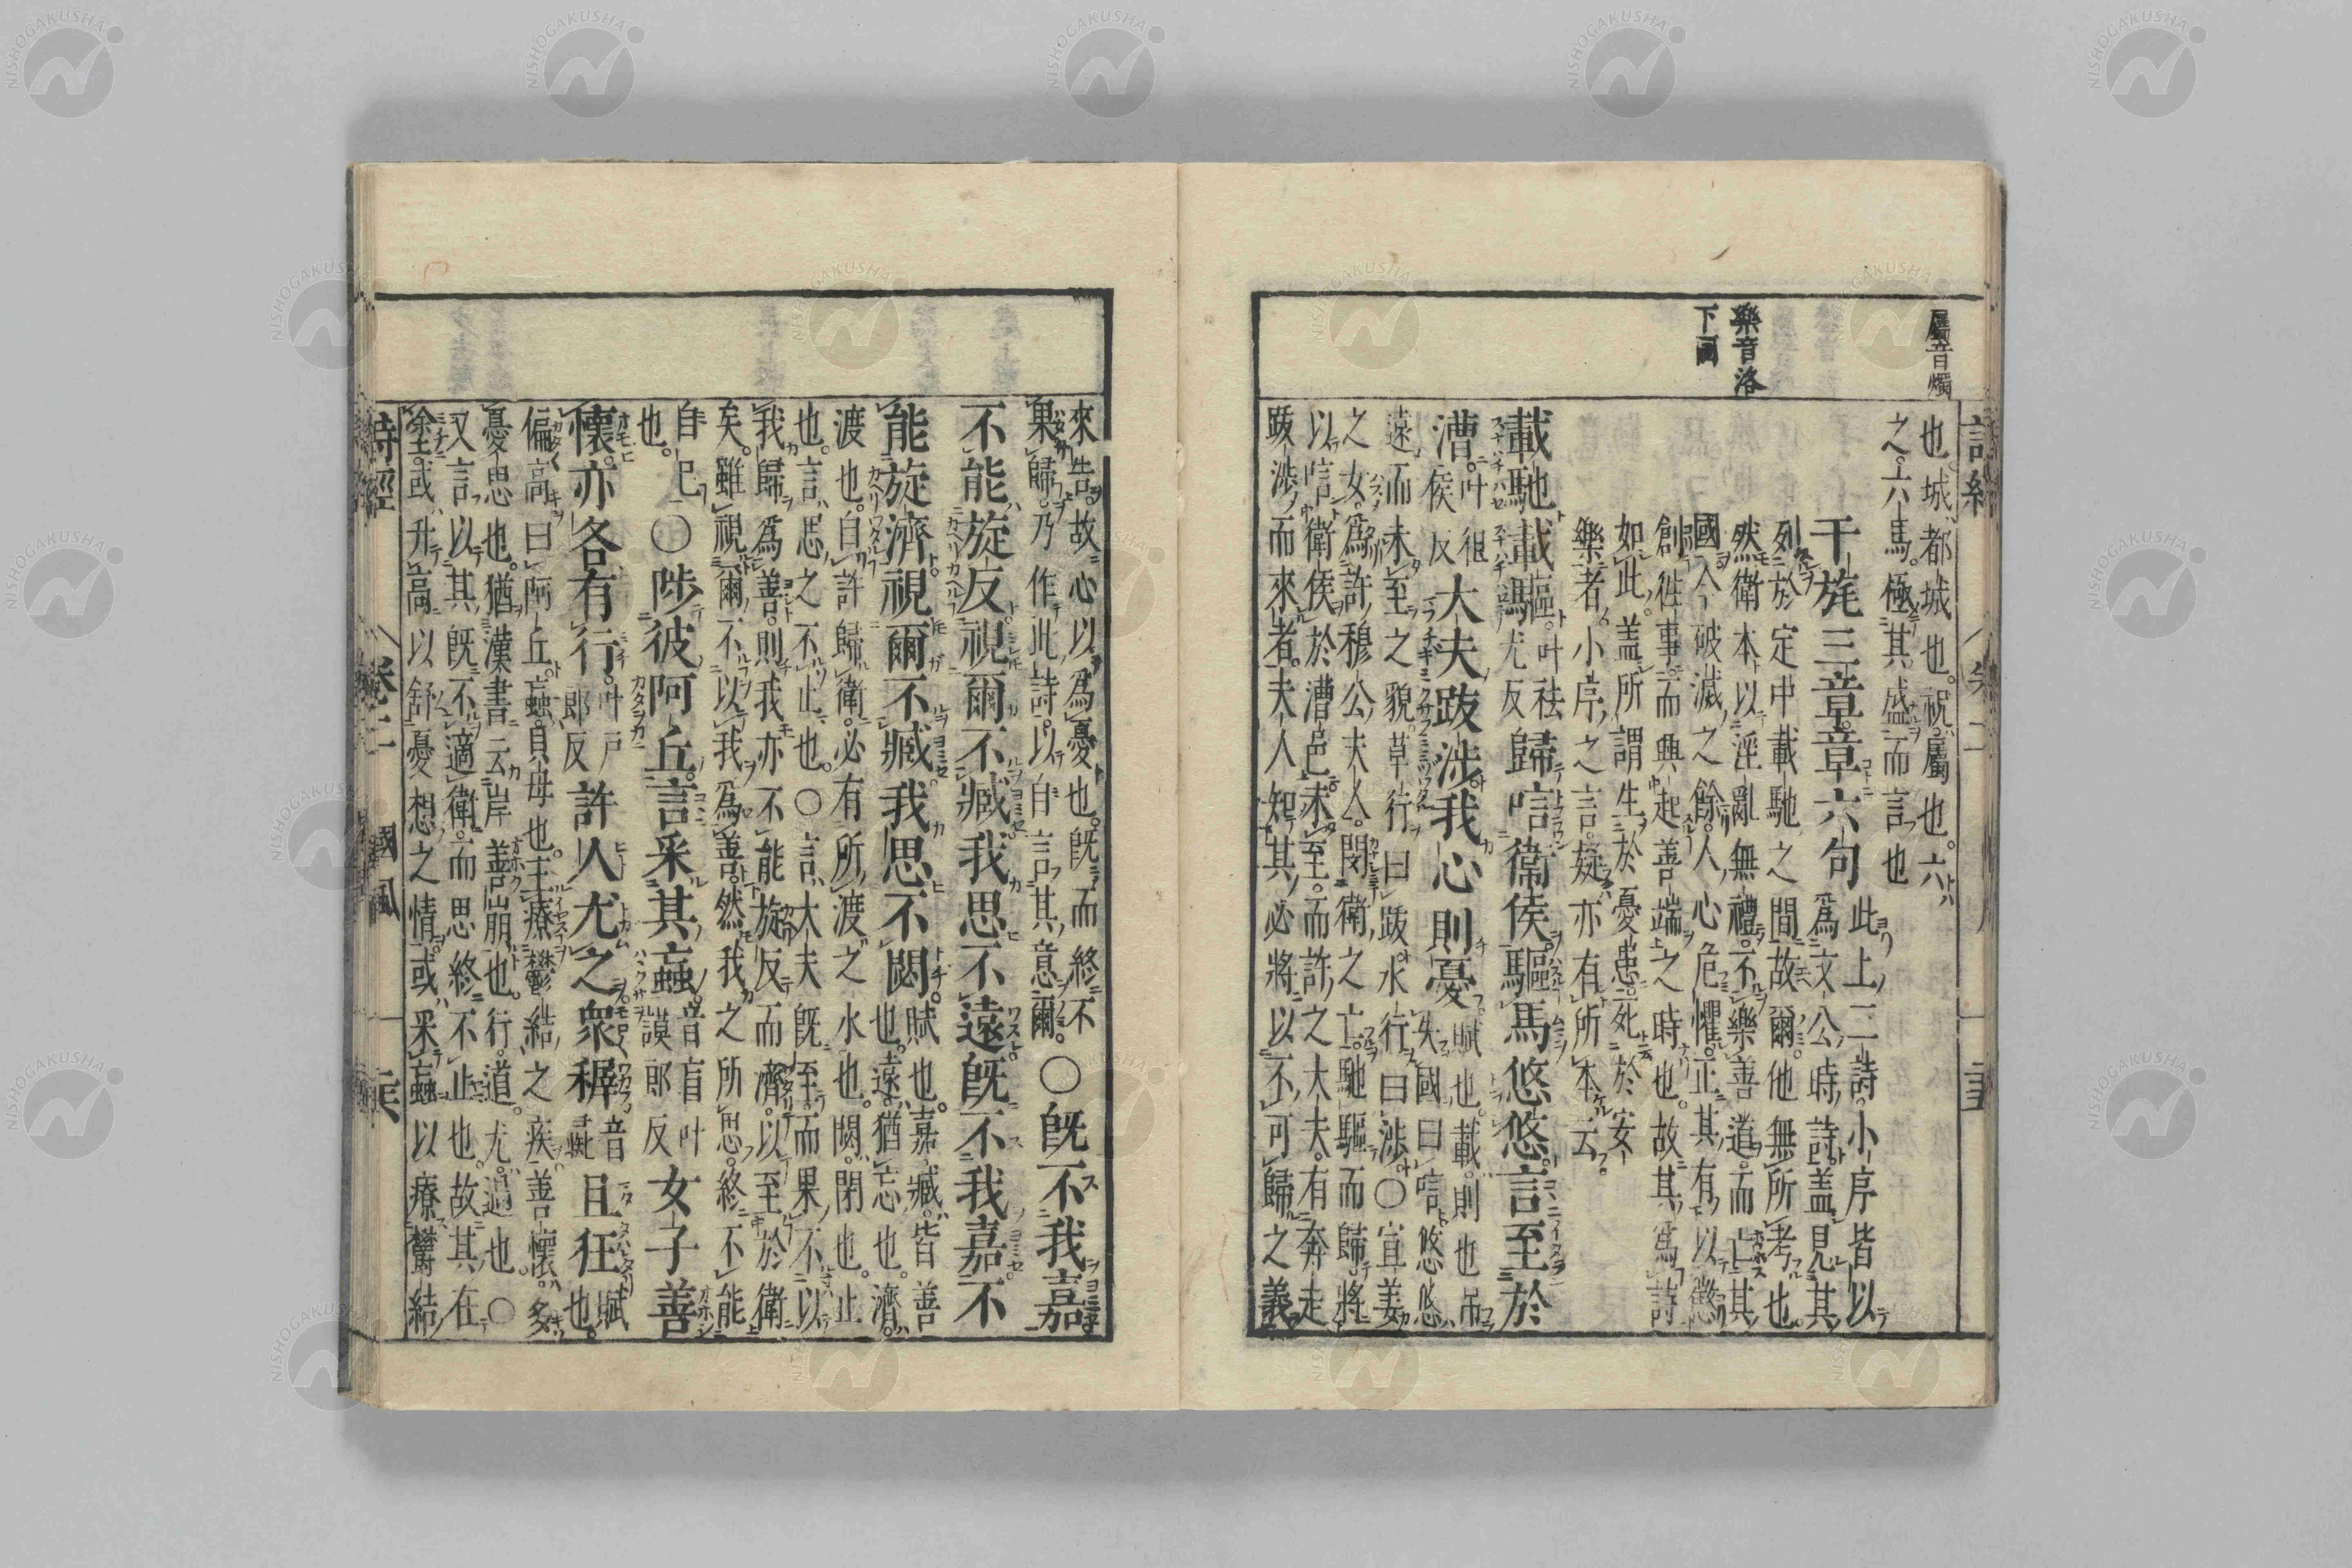 屬音燭
樂音洛
下同
也城都城也祝屬也六
之六馬極其盛而言也
干旄三章章六句
此上二詩小序皆以
爲文公時詩蓋見其
列於定中載馳之間故爾他無所考也
然衛本以淫亂無禮不樂善道而亡其
國今破滅之餘人心危懼正其有以懲
創往事而興起善端之時也故其爲詩
如此蓋所謂生於憂患死於安
樂者小序之言疑亦有所本云
載馳載驅
叶祛
尤反
歸唁衛侯驅馬悠悠言至於
漕
叶徂
侯反
大夫跋涉我心則憂
賦也載則也吊
失國曰唁悠悠
遠而未至之貌草行曰跋水行曰涉○宣姜
之女爲許穆公夫人閔衛之亡馳驅而歸將
以唁衛侯於漕邑未至而許之大夫有奔走
跋涉而來者夫人知其必將以不可歸之義
來告故心以爲憂也旣而終不
果歸乃作此詩以自言其意爾
○旣不我嘉
不能旋反視爾不臧我思不遠旣不我嘉不
能旋濟視爾不臧我思不閟
賦也嘉臧皆善
也遠猶忘也濟
渡也自許歸衛必有所渡之水也閟閉也止
也言思之不止也○言大夫旣至而果不以
我歸爲善則我亦不能旋反而濟以至於衛
矣雖視爾不以我爲善然我之所思終不能
自已
也
○陟彼阿丘言采其蝱
音盲叶
謨郎反
女子善
懷亦各有行
叶戸
郎反
許人尤之衆穉
音
且狂
賦
也
偏高曰阿丘蝱貝母也主療鬱結之疾善懷多
憂思也猶漢書云岸善崩也行道尤過也○
又言以其旣不適衛而思終不止也故其在
塗或升高以舒憂想之情或采蝱以療鬱結
詩經
卷二
國風